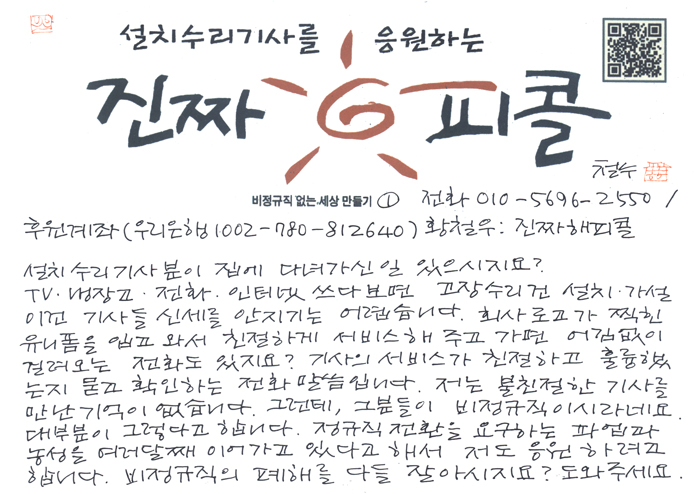 설치수리기사를 응원하는
진짜 해피콜
철수
비정규직 없는 세상 만들기 ① 전화 010-5696-2550 /
후원계좌(우리은행1002-780-812640) 황철우: 진짜해피콜
설치수리기사분이 집에 다녀가신일 있으시지요?
TV·냉장고·전화·인터넷 쓰다보면 고장수리건 설치·가설
이건 기사들 신세를 안지기는 어렵습니다. 회사로고가 찍힌
유니폼을 입고 와서 친절하게 서비스해 주고 가면 어김없이
걸려오는 전화도 있지요? 기사의 서비스가 친절하고 훌륭했
는지 묻고 확인하는 전화 말씀입니다. 저는 불친절한 기사를
만난 기억이 없습니다. 그런데, 그분들이 비정규직이시라네요.
대부분이 그렇다고 합니다. 정규직 전환을 요구하는 파업과
농성을 여러달째 이어가고 있다고 해서 저도 응원 하려고
합니다. 비정규직의 폐해를 다들 잘아시지요? 도와주세요.